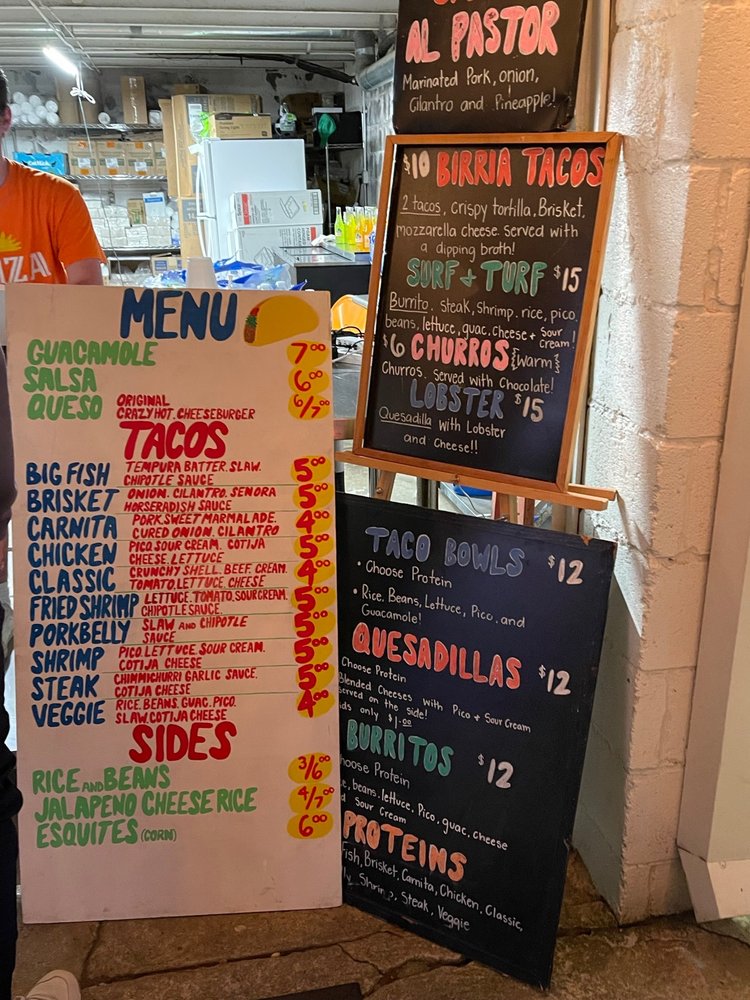 AL PASTOR
Marinated Pork, onion,
Cilantro and Pineapple!
$10 BIRRIA TACOS
2 tacos, crispy tortilla, Brisket,
mozzarella cheese. Served with
a dipping broth!
SURF + TURF $15
Burrito. steak, shrimp. rice, pico,
beans, lettuce, guac. cheese + sour cream!
$6 CHURROS {warm}
Churros. Served with Chocolate!
LOBSTER $15
Quesadilla with Lobster
and Cheese!!
MENU
GUACAMOLE 7.00
SALSA 6.00
QUESO ORIGINAL 6/7.00
CRAZY HOT. CHEESEBURGER
TACOS
BIG FISH TEMPURA BATTER. SLAW. 5.00
CHIPOTLE SAUCE
BRISKET ONION. CILANTRO. SENORA 5
HORSERADISH SAUCE
CARNITA PORK. SWEET MARMALADE. 4
CURED ONION. CILANTRO
CHICKEN PICO. SOUR CREAM. COTIJA 5
CHEESE. LETTUCE
CLASSIC CRUNCHY SHELL. BEEF. CREAM. 4
TOMATO. LETTUCE. CHEESE
FRIED SHRIMP LETTUCE. TOMATO. SOUR CREAM. 5
CHIPOTLE SAUCE.
PORKBELLY SLAW AND CHIPOTLE 5
SAUCE
SHRIMP PICO. LETTUCE. SOUR CREAM. 5
COTIJA CHEESE
STEAK CHIMMICHURRI GARLIC SAUCE. 5
COTIJA CHEESE
VEGGIE RICE. BEANS. GUAC. PICO. 4
SLAW. COTIJA CHEESE
SIDES
RICE AND BEANS 3/6.00
JALAPENO CHEESE RICE 4/7.00
ESQUITES (CORN) 6.00
TACO BOWLS $12
• Choose Protein
• Rice, Beans, Lettuce, Pico, and
Guacamole!
QUESADILLAS $12
Choose Protein
Blended Cheeses with Pico + Sour Cream
served on the side!
only $1.00
BURRITOS $12
Protein
beans, lettuce, Pico, guac, cheese
Sour Cream
PROTEINS
Fish, Brisket, Carnita, Chicken, Classic,
Shrimp, Steak, Veggie